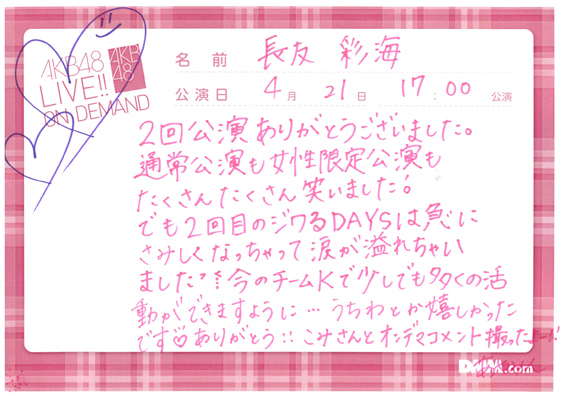 AKB48
LIVE!!
ON DEMAND
AKB
48
名前 長友 彩海
公演日 4月 21日 17:00 公演
2回公演ありがとうございました。
通常公演も女性限定公演も
たくさんたくさん笑いました!
でも2回目のジワるDAYSは急に
さみしくなっちゃって涙が溢れちゃい
ました 今のチームKで少しでも多くの活
動ができますように… うちわとか嬉しかった
です♡ありがとう!! こみさんとオンデマコメント撮ったよー!!
DMM.com